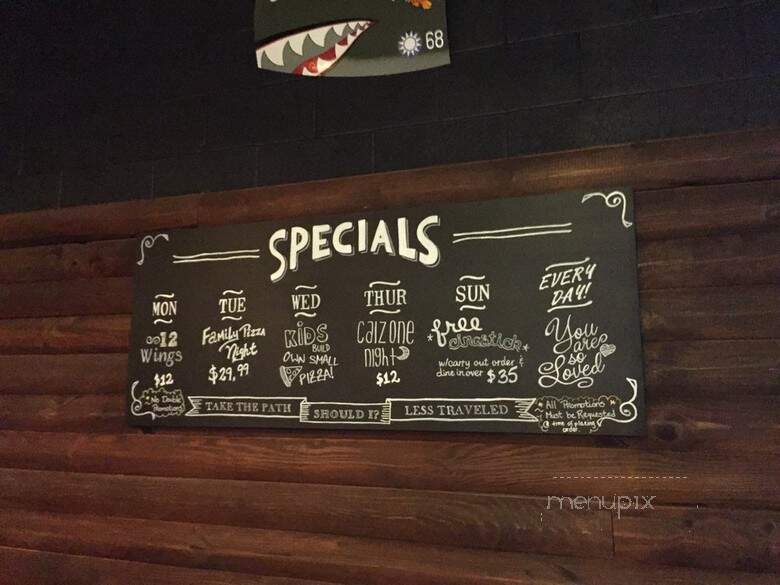 68
SPECIALS
MON
12
Wings
$12
TUE
Family Pizza
Night
$29.99
WED
KIDS
BUILD
OWN SMALL
PIZZA!
THUR
CALZONE
NIGHT
$12
SUN
free
w/carry out order &
dine in over $35
EVERY
DAY!
You
are
so
Loved
No Double
Promotions
TAKE THE PATH
SHOULD I?
LESS TRAVELED
All Promotions
Must be Requested
@ time of placing
order.
menupix